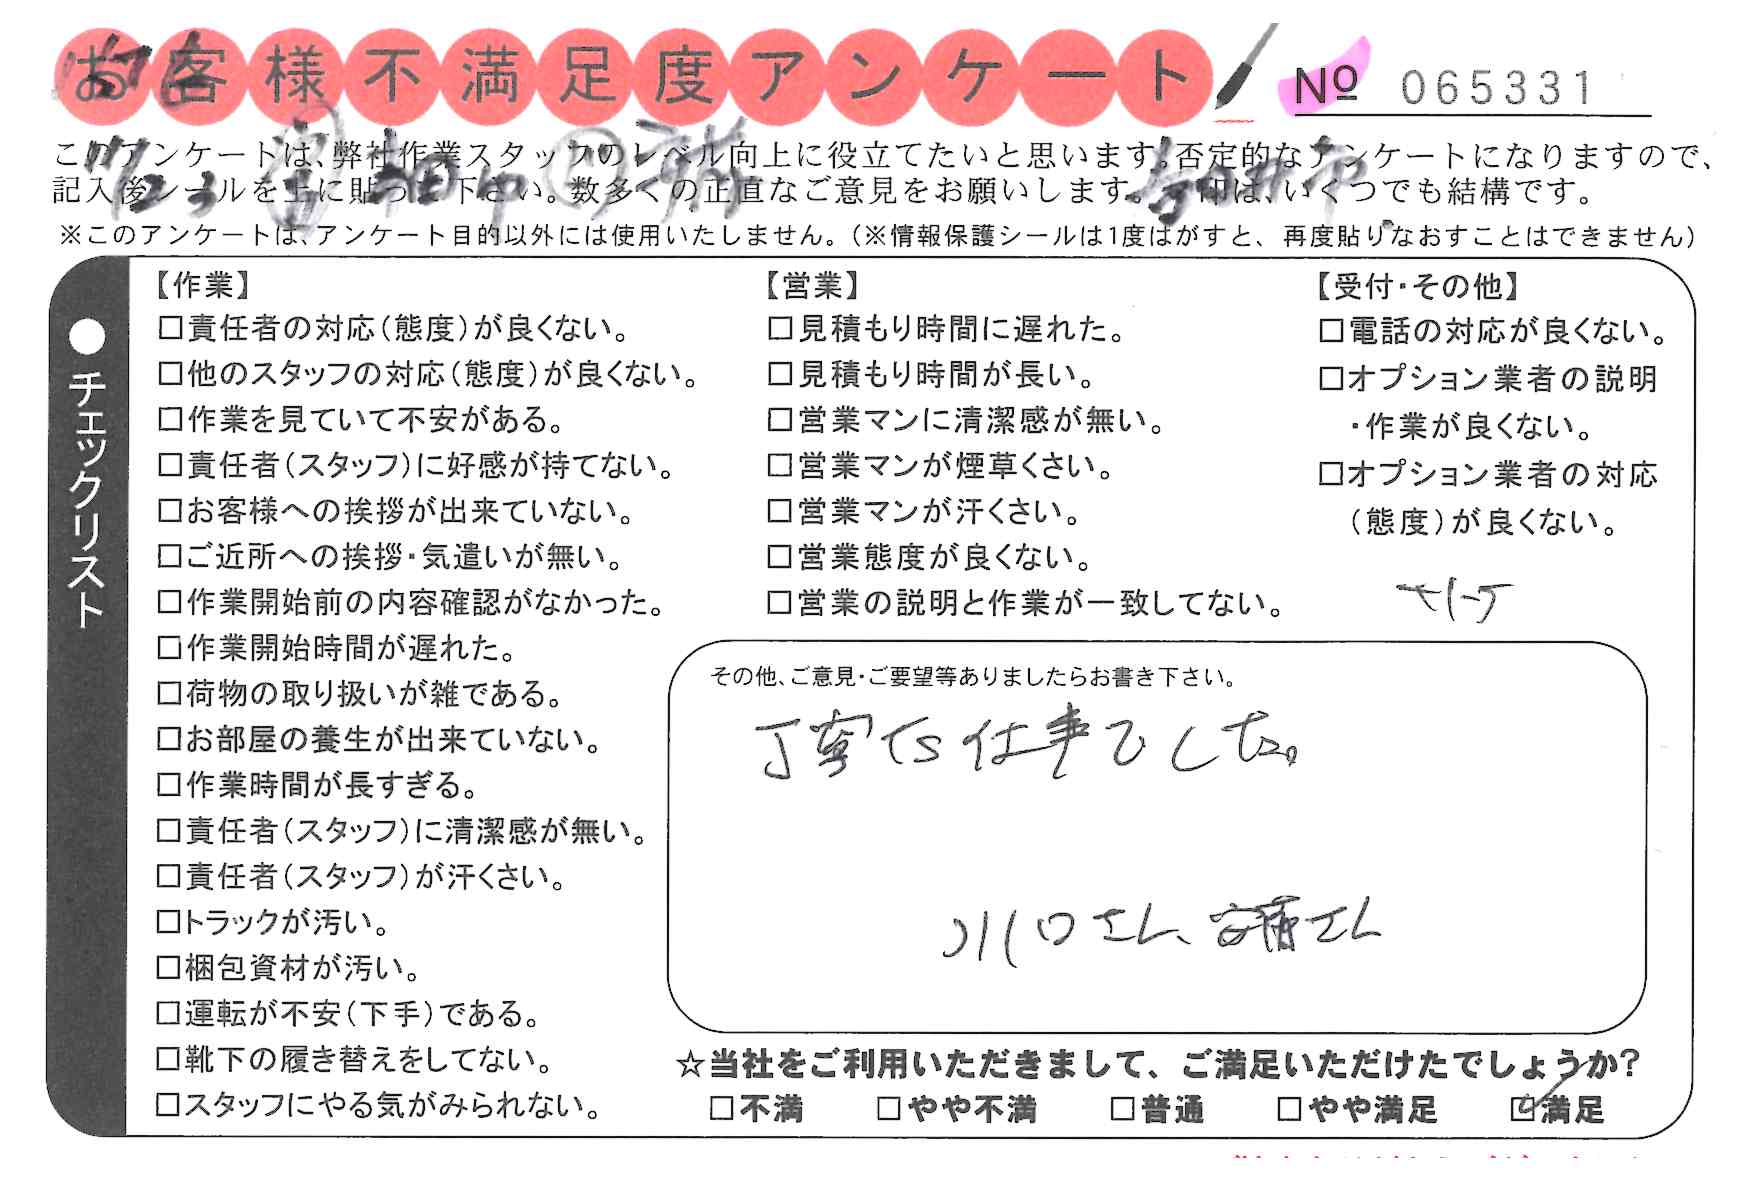 お客様不満足度アンケート
№ 065331
このアンケートは、弊社作業スタッフのレベル向上に役立てたいと思います。否定的なアンケートになりますので、
記入後シールを上に貼って下さい。数多くの正直なご意見をお願いします。 印は、いくつでも結構です。
※このアンケートは、アンケート目的以外には使用いたしません。（※情報保護シールは1度はがすと、再度貼りなおすことはできません）
●チェックリスト
【作業】
□責任者の対応（態度）が良くない。
□他のスタッフの対応（態度）が良くない。
□作業を見ていて不安がある。
□責任者（スタッフ）に好感が持てない。
□お客様への挨拶が出来ていない。
□ご近所への挨拶・気遣いが無い。
□作業開始前の内容確認がなかった。
□作業開始時間が遅れた。
□荷物の取り扱いが雑である。
□お部屋の養生が出来ていない。
□作業時間が長すぎる。
□責任者（スタッフ）に清潔感が無い。
□責任者（スタッフ）が汗くさい。
□トラックが汚い。
□梱包資材が汚い。
□運転が不安（下手）である。
□靴下の履き替えをしてない。
□スタッフにやる気がみられない。
【営業】
□見積もり時間に遅れた。
□見積もり時間が長い。
□営業マンに清潔感が無い。
□営業マンが煙草くさい。
□営業マンが汗くさい。
□営業態度が良くない。
□営業の説明と作業が一致してない。
【受付・その他】
□電話の対応が良くない。
□オプション業者の説明
・作業が良くない。
□オプション業者の対応
（態度）が良くない。
その他、ご意見・ご要望等ありましたらお書き下さい。
丁寧な仕事でした。
川口さん、斉藤さん
☆当社をご利用いただきまして、ご満足いただけたでしょうか?
□不満 □やや不満 □普通 □やや満足 ☑満足